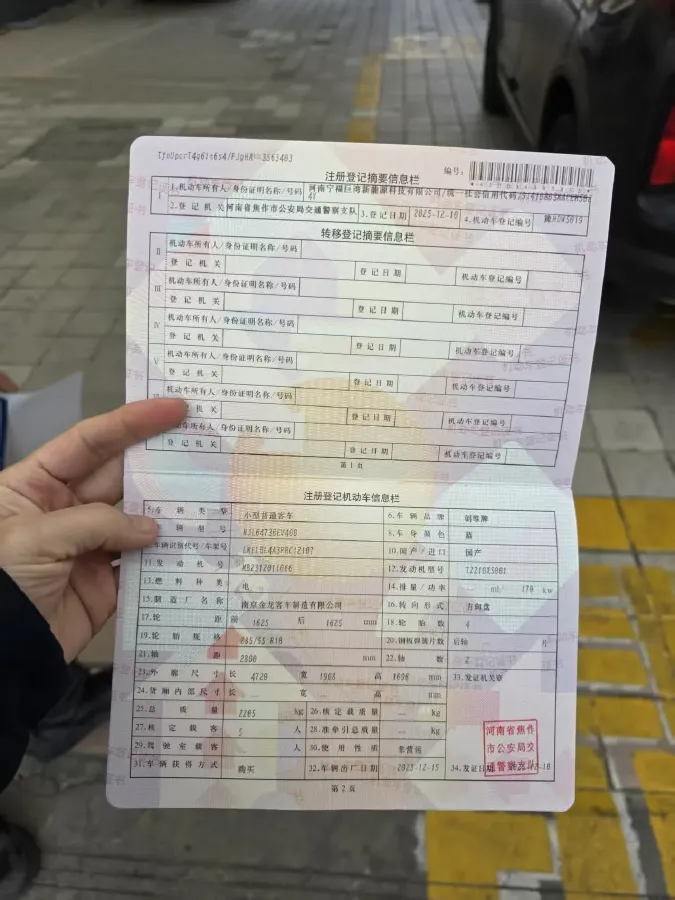 编号:
注册登记摘要信息栏
I 1.机动车所有人/身份证明名称/号码 河南宁福巨湾新能源科技有限公司/统一社会信用代码
2.登记机关 河南省焦作市公安局交通警察支队 3.登记日期 2025-12-10 4.机动车登记编号
转移登记摘要信息栏
II 机动车所有人/身份证明名称/号码
登记机关 登记日期 机动车登记编号
III 机动车所有人/身份证明名称/号码
登记机关 登记日期 机动车登记编号
IV 机动车所有人/身份证明名称/号码
登记机关 登记日期 机动车登记编号
V 机动车所有人/身份证明名称/号码
登记机关 登记日期 机动车登记编号
机动车所有人/身份证明名称/号码
机关 登记日期 机动车登记编号
机动车所有人/身份证明名称/号码
登记机关 登记日期 机动车登记编号
第1页
注册登记机动车信息栏
5.车辆类型 小型普通客车 6.车辆品牌 创维牌
车辆型号 NJL6473BEV40B 8.车身颜色 蓝
车辆识别代号/车架号 10.国产/进口 国产
11.发动机号 12.发动机型号 TZ210XS001
13.燃料种类 电 14.排量/功率 ml/ 170 kw
15.制造厂名称 南京金龙客车制造有限公司 16.转向形式 方向盘
17.轮距 前 1625 后 1625 mm 18.轮胎数 4
19.轮胎规格 20.钢板弹簧片数 后轴 -- 片
21.轴距 2800 mm 22.轴数 2
23.外廓尺寸 长 4720 宽 1908 高 1696 mm 33.发证机关章
24.货厢内部尺寸 长 -- 宽 -- 高 -- mm
25.总质量 2285 kg 26.核定载质量 -- Kg
27.核定载客 5 人 28.准牵引总质量 -- Kg
29.驾驶室载客 -- 人 30.使用性质 非营运
31.车辆获得方式 购买 32.车辆出厂日期 2023-12-15 34.发证日期
河南省焦作
市公安局交
通警察支队
第2页